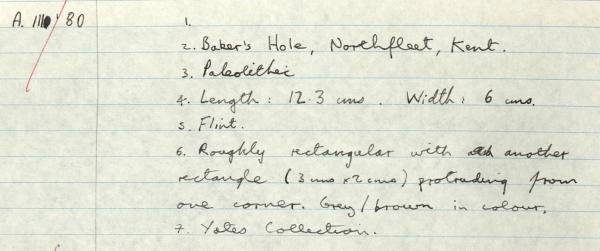 A. 111 / 80
1.
2. Baker's Hole, Northfleet, Kent.
3. Paleolithic
4. Length: 12.3 cms. Width: 6 cms.
5. Flint.
6. Roughly rectangular with another
rectangle (3 cms x 2 cms) protruding from
one corner. Grey/brown in colour.
7. Yates Collection.